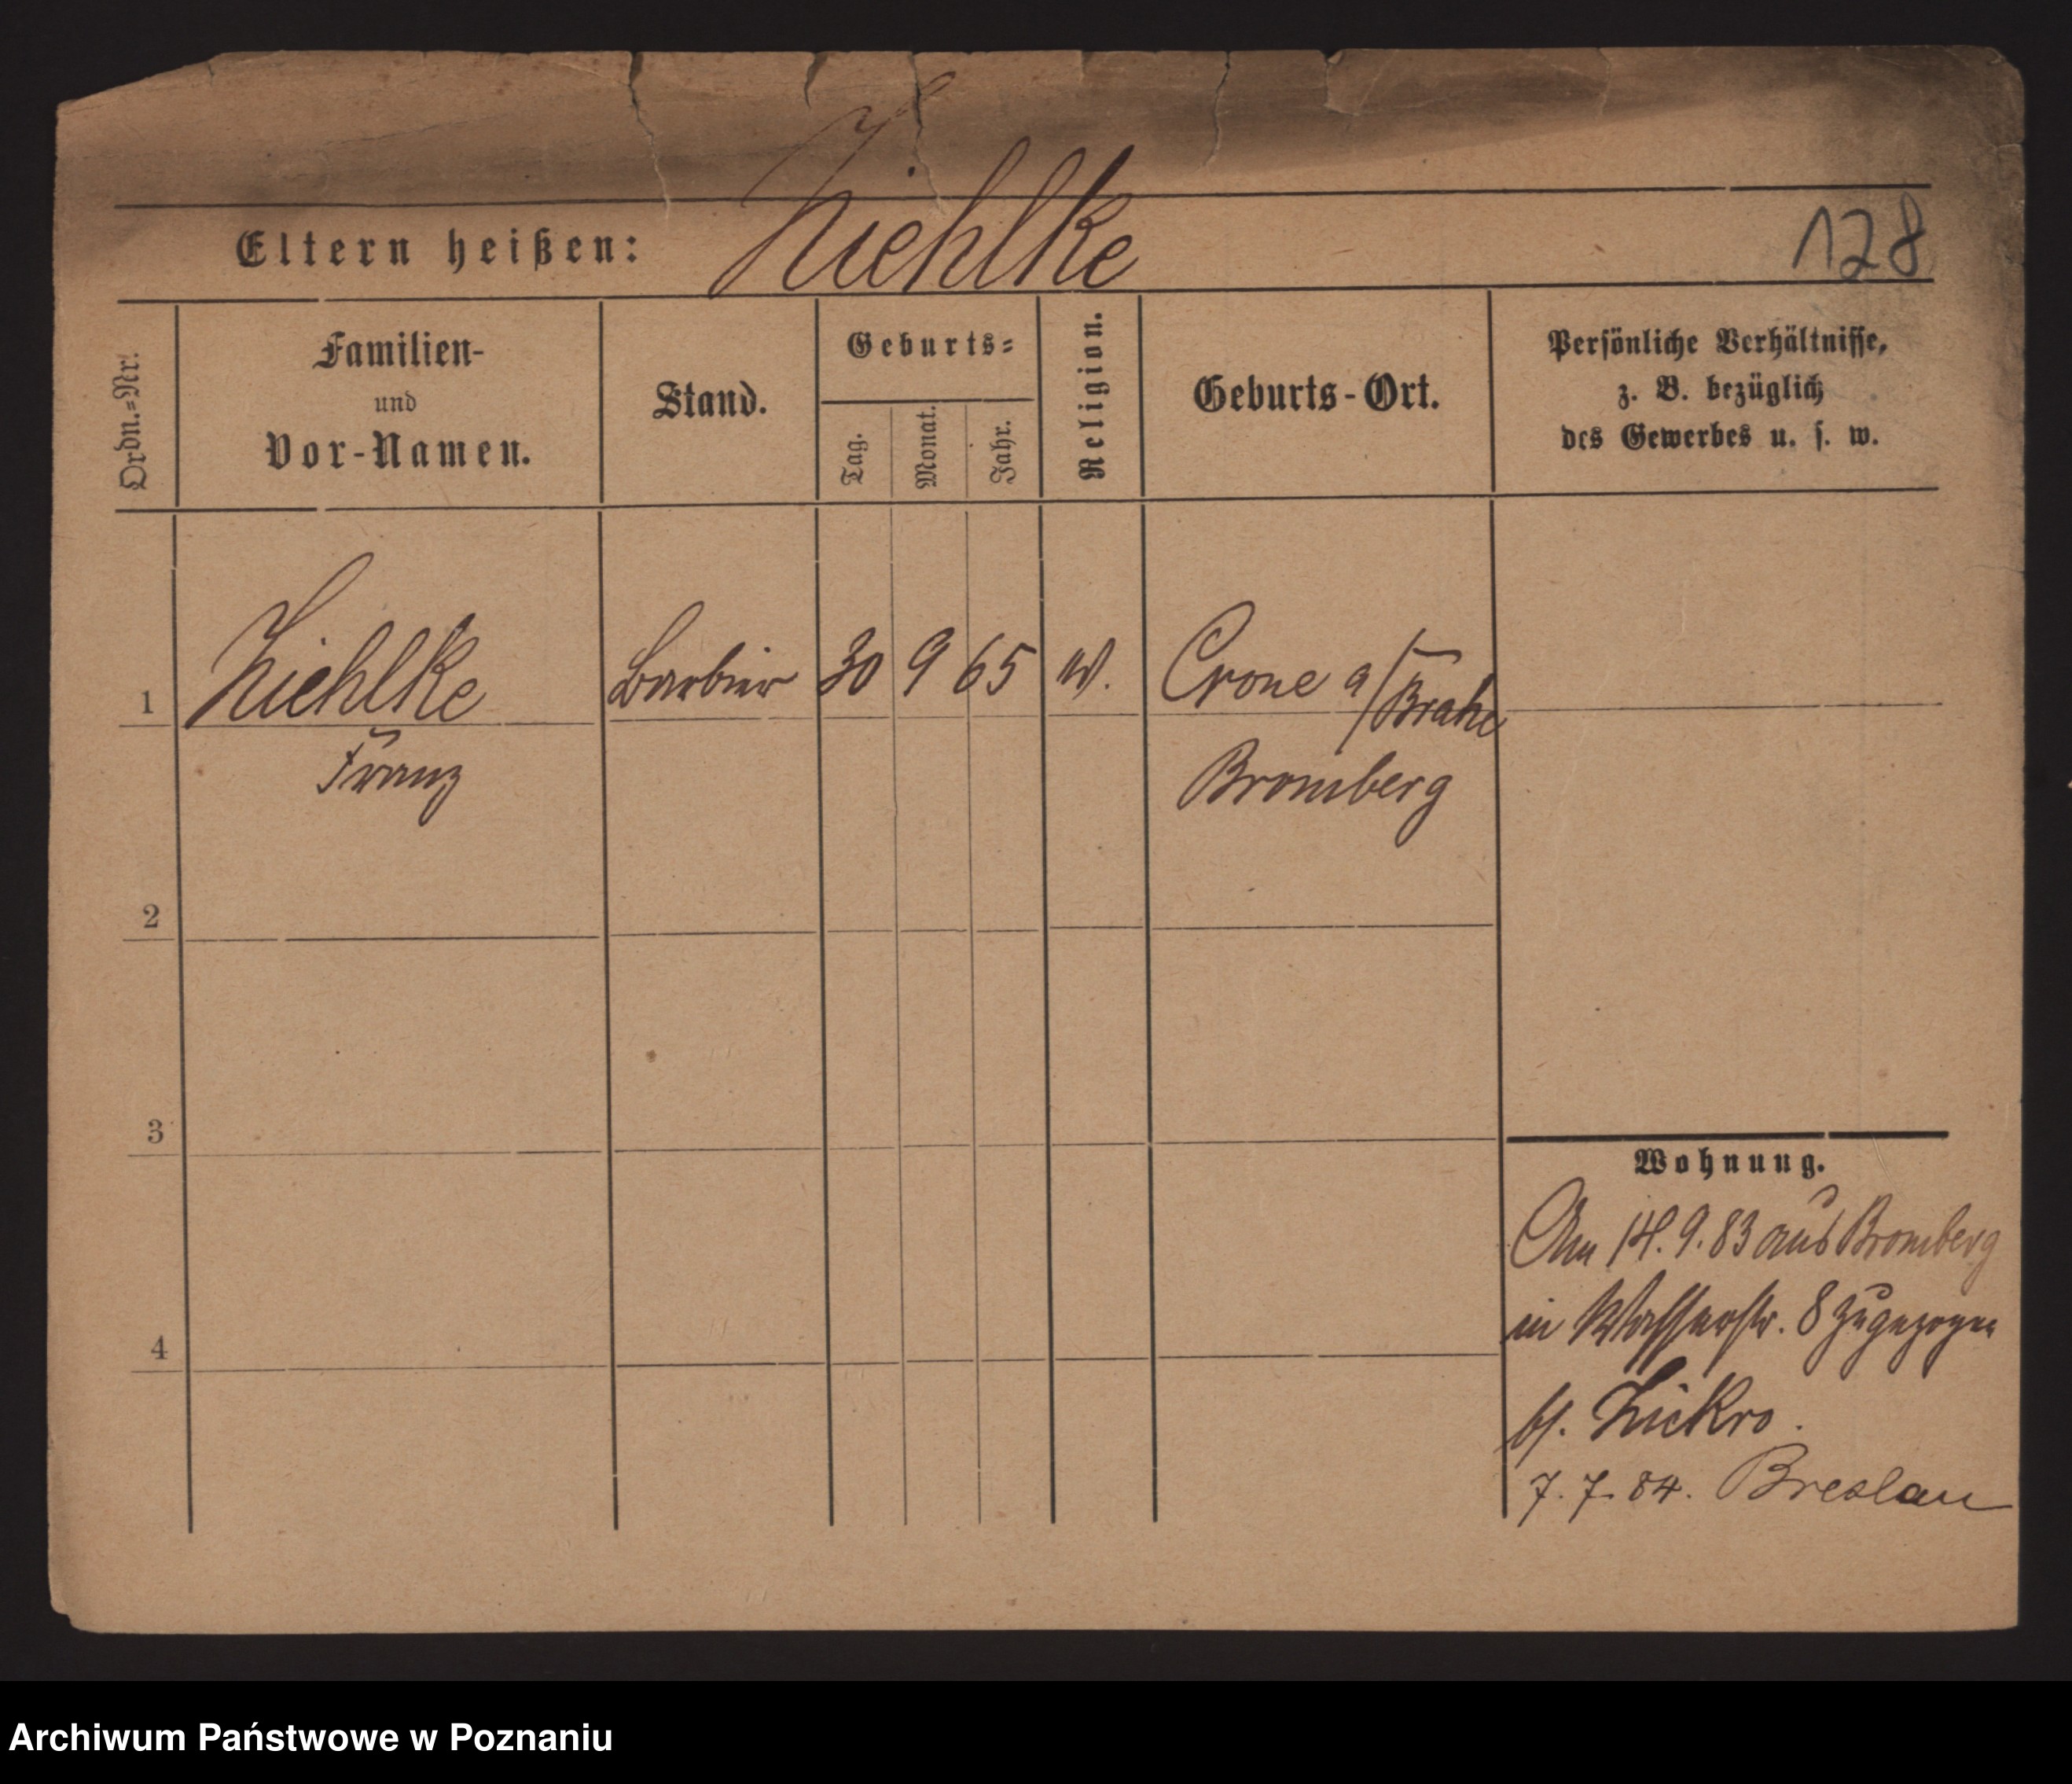 Ziehlke
Eltern heißen:
128
Ordn.=Nr.
Familien-
und
Vor-Namen.
Stand.
Geburts=
Tag.
Monat.
Jahr.
Religion.
Geburts-Ort.
Persönliche Verhältnisse,
z. B. bezüglich
des Gewerbes u. s. w.
1
Ziehlke
Franz
Barbier
30
9
65
Crone a/Brahe
Bromberg
2
3
4
Wohnung.
Am 14. 9. 83 aus Bromberg
in Wasserstr. 8 zugezogen
7. 7. 84. Breslau
Archiwum Państwowe w Poznaniu